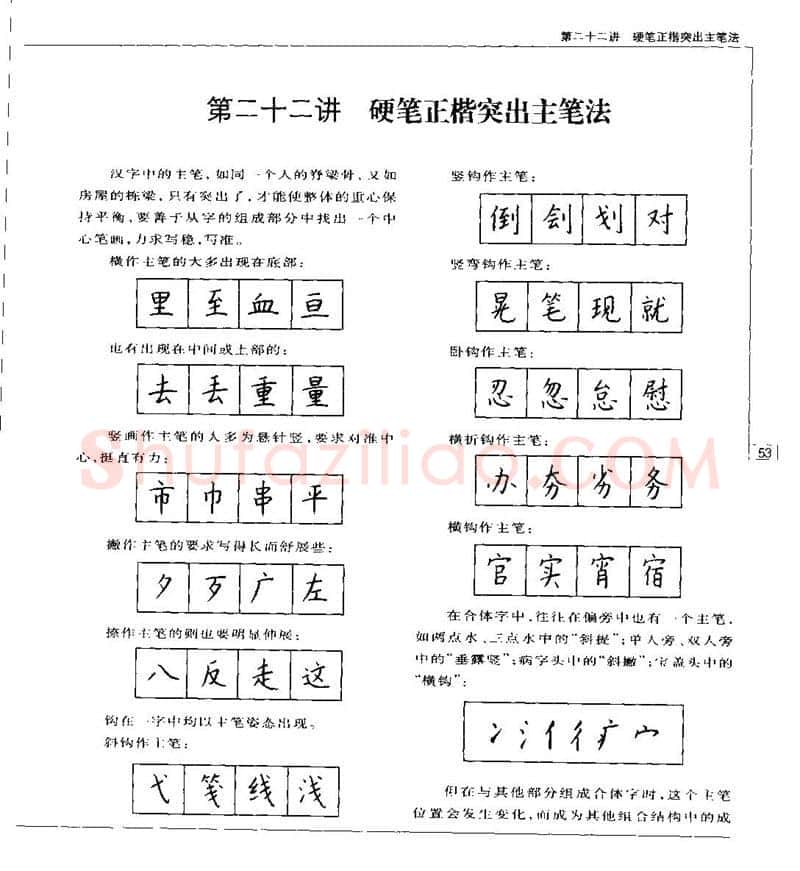 第二十二讲 硬笔正楷突出主笔法
第二十二讲 硬笔正楷突出主笔法
汉字中的主笔，如同一个人的脊梁骨、又如
房屋的栋梁，只有突出了，才能使整体的重心保
持平衡，要善于从字的组成部分中找出一个中
心笔画，力求写稳，写准。
横作主笔的大多出现在底部：
里至血亘
也有出现在中间或上部的：
去丢重量
竖画作主笔的大多为悬针竖，要求对准中
心，挺直有力：
市巾串平
撇作主笔的要求写得长而舒展些：
夕歹广左
捺作主笔的则也要明显伸展：
八反走这
钩在一字中均以主笔姿态出现。
斜钩作主笔：
弋笺线浅
竖钩作主笔：
倒刽划对
竖弯钩作主笔：
晃笔现就
卧钩作主笔：
忍忽怠慰
横折钩作主笔：
办夯劣务
横钩作主笔：
官实宵宿
在合体字中，往往在偏旁中也有一个主笔，
如两点水、三点水中的“斜提”；单人旁、双人旁
中的“垂露竖”；病字头中的“斜撇”；宝盖头中的
“横钩”：
冫氵亻彳疒宀
但在与其他部分组成合体字时，这个主笔
位置会发生变化，而成为其他组合结构中的成
53
Shufaziliao.COM